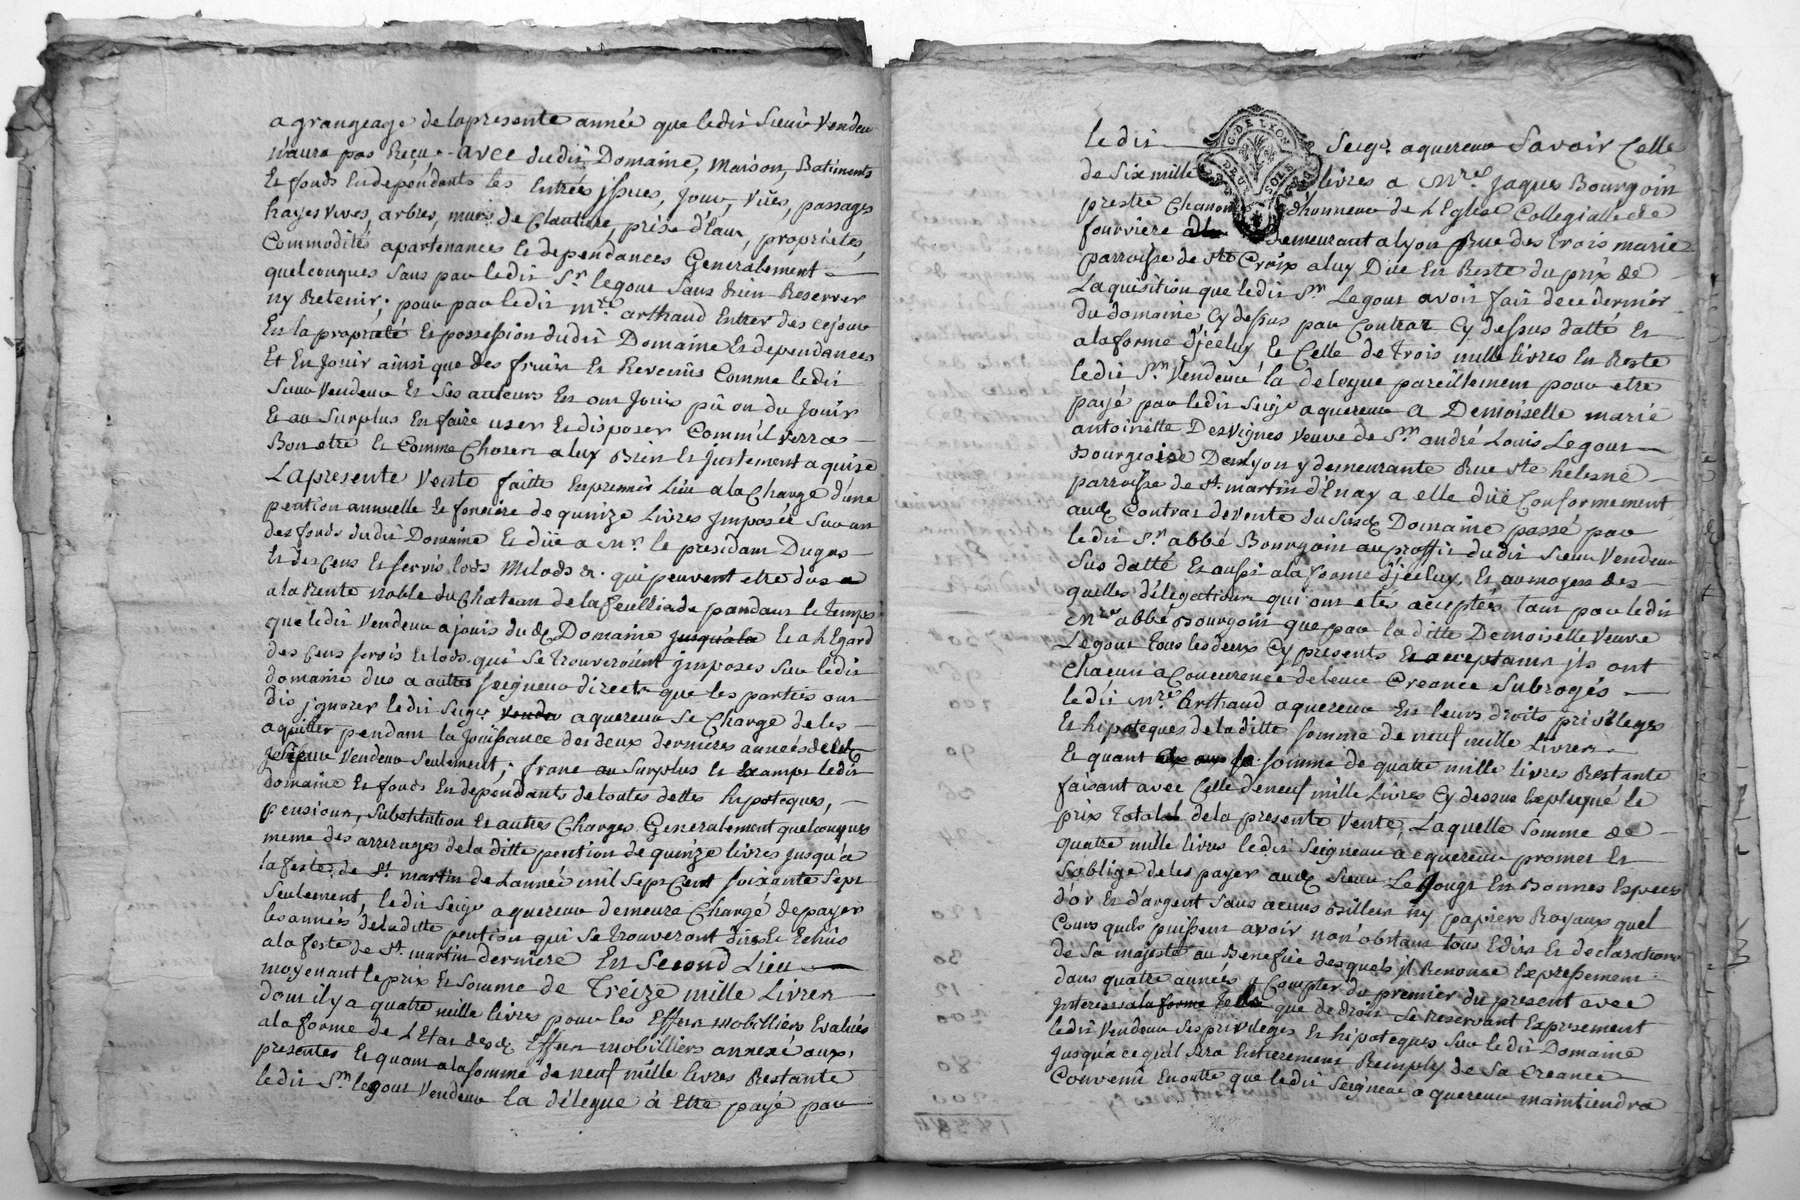 a grangeage de lapresente année que ledit Sieur Vendeur
n'aura pas Reçu - avec dudit Domaine, Maison, Batiments
Et fonds En dépendants les Entrées jssues, Jour, Vües, passages
hayes vives, arbres, murs de Clauture, prise d'Eau, proprietés,
Commodités apartenances Et dependances Generalement
quelconques Sans par ledit Sr. legout Sans Rien Reserver
ny Retenir; pour par ledit mre. arthaud Entrer des cejour
En la propriété Et possession dudit Domaine Et dependances
Et En Jouir ainsi que des fruits Et Revenus Comme ledit
Sieur Vendeur Et Ses auteurs En ont Jouis pû ou du Jouir
Et au Surplus En faire user Et disposer Comm'il verra
Bon etre Et Comme Choses a luy Bien Et Justement aquise
Lapresente Vente faitte Enpremier Lieu ala Charge d'une
pention annuelle Et fonciere de quinze Livres Jmposée Sur un
des fonds dudit Domaine Et düe a Mr. le presidant Dugas
Et des Cens Et servis lods Milods &. qui peuvent etre dus a
ala Rente noble du Chateau de la feuilliade pandant le temps
que ledit Vendeur a jouis dud. Domaine jusqu'ala Et a l'Egard
des Cens servis Et lods qui Se trouveroient jmposes Sur ledit
domaine dus a autres seigneurs directs que les parties ont
dit jgnorer ledit Seigr. Vendr aquereur Se Charge de les
aquitter pendant la Jouissance des deux dernieres années dudt.
Sieur Vendeur Seulement; franc au Surplus Et Exampt ledit
domaine Et fonds En dependants de toutes dettes hypoteques,
pensions, Substitution Et autres Charges Generalement quelconques
meme des arrerages de la ditte pention de quinze livres jusqu'a
la feste de St. martin de L'année mil Sept Cent soixante Sept
Seulement, ledit Seigr. aquereur demeure Chargé de payer
les années de la ditte pention qui Se trouveront düe Et Echüs
ala feste de St. martin derniere En Second Lieu
moyenant le prix Et Somme de Treize mille Livres
dont il y a quatre mille livres pour les Effets mobilliers Evalués
ala forme de L'Etat desd. Effets mobilliers annexé aux
presentes Et quant a la somme de neuf mille livres Restante
ledit Sr. legout Vendeur la délegue à Etre payé par
G. DE LYON
DEUX SOLS
ledit Seigr. aquereur Savoir Celle
de Six mille livres a Mre. Jaques Bourgoin
prestre Chanoine d'honneur de L'Eglise Collegialle de
fourviere demeurant a lyon Rue des trois marie
parroisse de Ste Croix a luy Düe En Reste du prix de
L'aquisition que ledit Sr. Legout avoit fait de ce dernier
du domaine Cy dessus par Contrat Cy dessus datté Et
ala forme d'jceluy Et Celle de trois mille livres En Reste
ledit Sr. Vendeur la delegue pareillement pour etre
payé par ledit Seigr. aquereur a Demoiselle marie
antoinette Desvignes veuve de Sr. andré Louis Legout
Bourgeoise De Lyon y demeurante Rue Ste helesne
parroisse de St. martin d'Enay a elle düe Conformement
aud. Contrat de vente du Susd. Domaine passé par
ledit Sr. abbé Bourgoin au proffit dudit Sieur Vendeur
Sus datté Et aussi ala forme d'jceluy, Et au moyen des
quelles délegations qui ont etés acceptées tant par ledit
Mre. abbé Bourgoin que par la ditte Demoiselle Veuve
Legout tous les deux Cy presents Et acceptants jls ont
Chacun a Concurence de leurs Creance Subrogés
ledit Mre. Arthaud aquereur En leurs droits privileges
Et hipoteques de la ditte somme de neuf mille Livres
Et quant a la somme de quatre mille livres Restante
faisant avec Celle de neuf mille Livres Cy dessus Expliqué le
prix Total de la presente Vente, Laquelle Somme de
quatre mille livres ledit Seigneur acquereur promet Et
S'oblige de les payer aud. Sieur Legout En Bonnes Especes
d'or Et d'argent Sans aucuns Billets ny papiers Royaux quel
Cours quils puissent avoir nonobstant tous Edits Et declarations
de Sa majesté au Benefice desquels jl Renonce Expressement
dans quatre années a Compter du premier du present avec
jnterest ala forme telle que de droit Se Reservant Expressement
ledit Vendeur Ses privileges Et hipoteques Sur ledit Domaine
Jusqu'a ce qu'il Sera Entierement Remply de Sa Creance
Convenû En outre que ledit Seigneur aquereur maintiendra